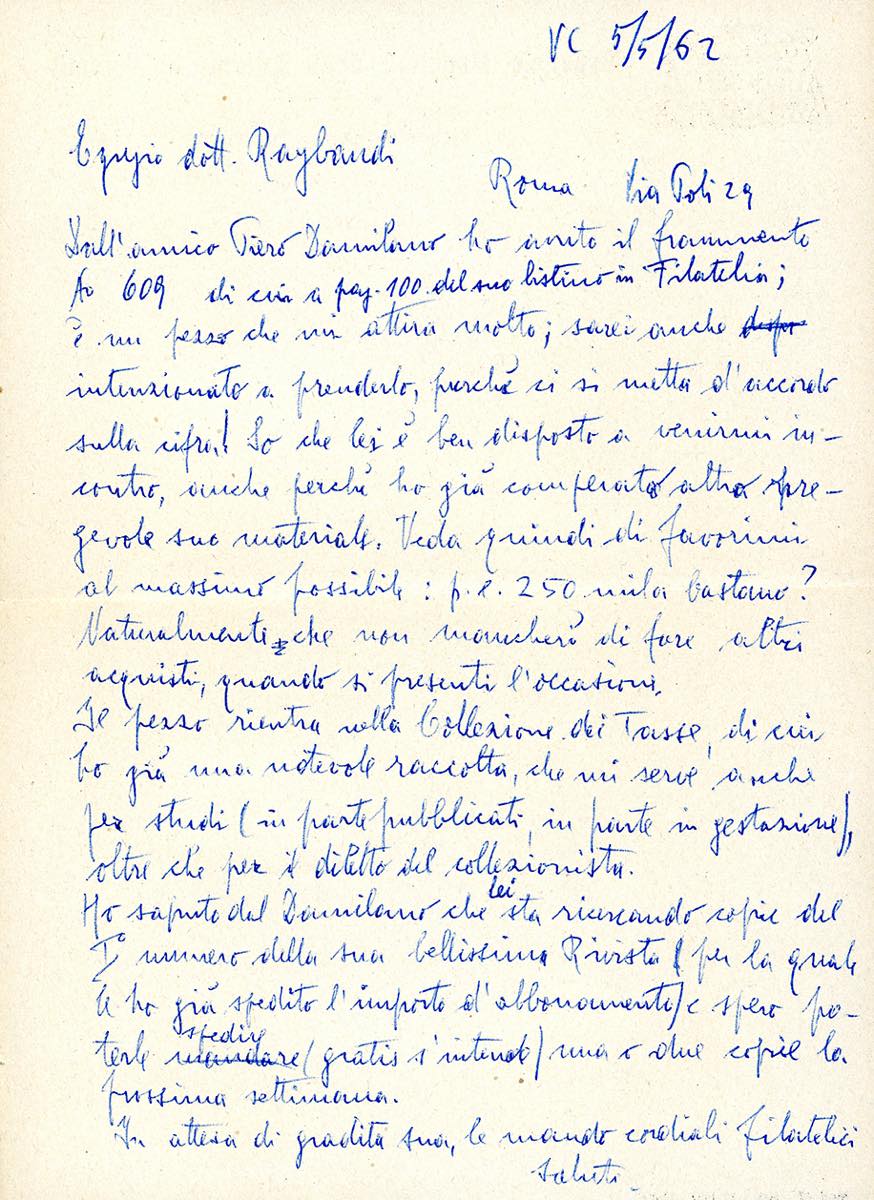 VC 5/5/62
Egregio dott. Raybaudi
Roma Via Poli 29
Dall'amico Piero Damilano ho avuto il frammento
No 609 di cui a pag. 100 del suo listino in Filatelia;
è un pezzo che mi attira molto; sarei anche
intenzionato a prenderlo, purché ci si metta d'accordo
sulla cifra! So che lei è ben disposto a venirmi in-
contro, anche perché ho già comperato altro pre-
gevole suo materiale. Veda quindi di favorirmi
al massimo possibile: p. e. 250 mila bastano?
Naturalmente che non mancherò di fare altri
acquisti, quando si presenti l'occasione.
Il pezzo rientra nella Collezione dei Tasse, di cui
ho già una notevole raccolta, che mi serve anche
per studi (in parte pubblicati, in parte in gestazione),
oltre che per il diletto del collezionista.
Ho saputo dal Damilano che lei sta ricercando copie del
I° numero della sua bellissima Rivista (per la quale
le ho già spedito l'importo d'abbonamento) e spero po-
terle spedire mandare (gratis s'intende) una o due copie la
prossima settimana.
In attesa di gradita sua, le mando cordiali filatelici
saluti